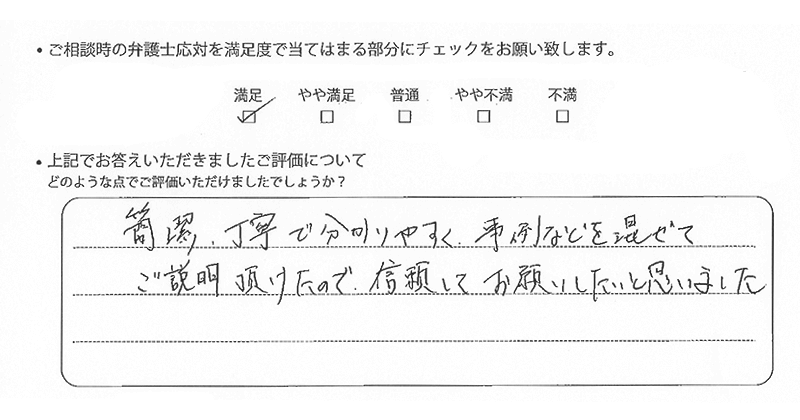 • ご相談時の弁護士応対を満足度で当てはまる部分にチェックをお願い致します。
満足 やや満足 普通 やや不満 不満
☑ □ □ □ □
• 上記でお答えいただきましたご評価について
どのような点でご評価いただけましたでしょうか？
簡潔、丁寧で分かりやすく、事例などを混ぜて
ご説明頂けたので、信頼してお願いしたいと思いました